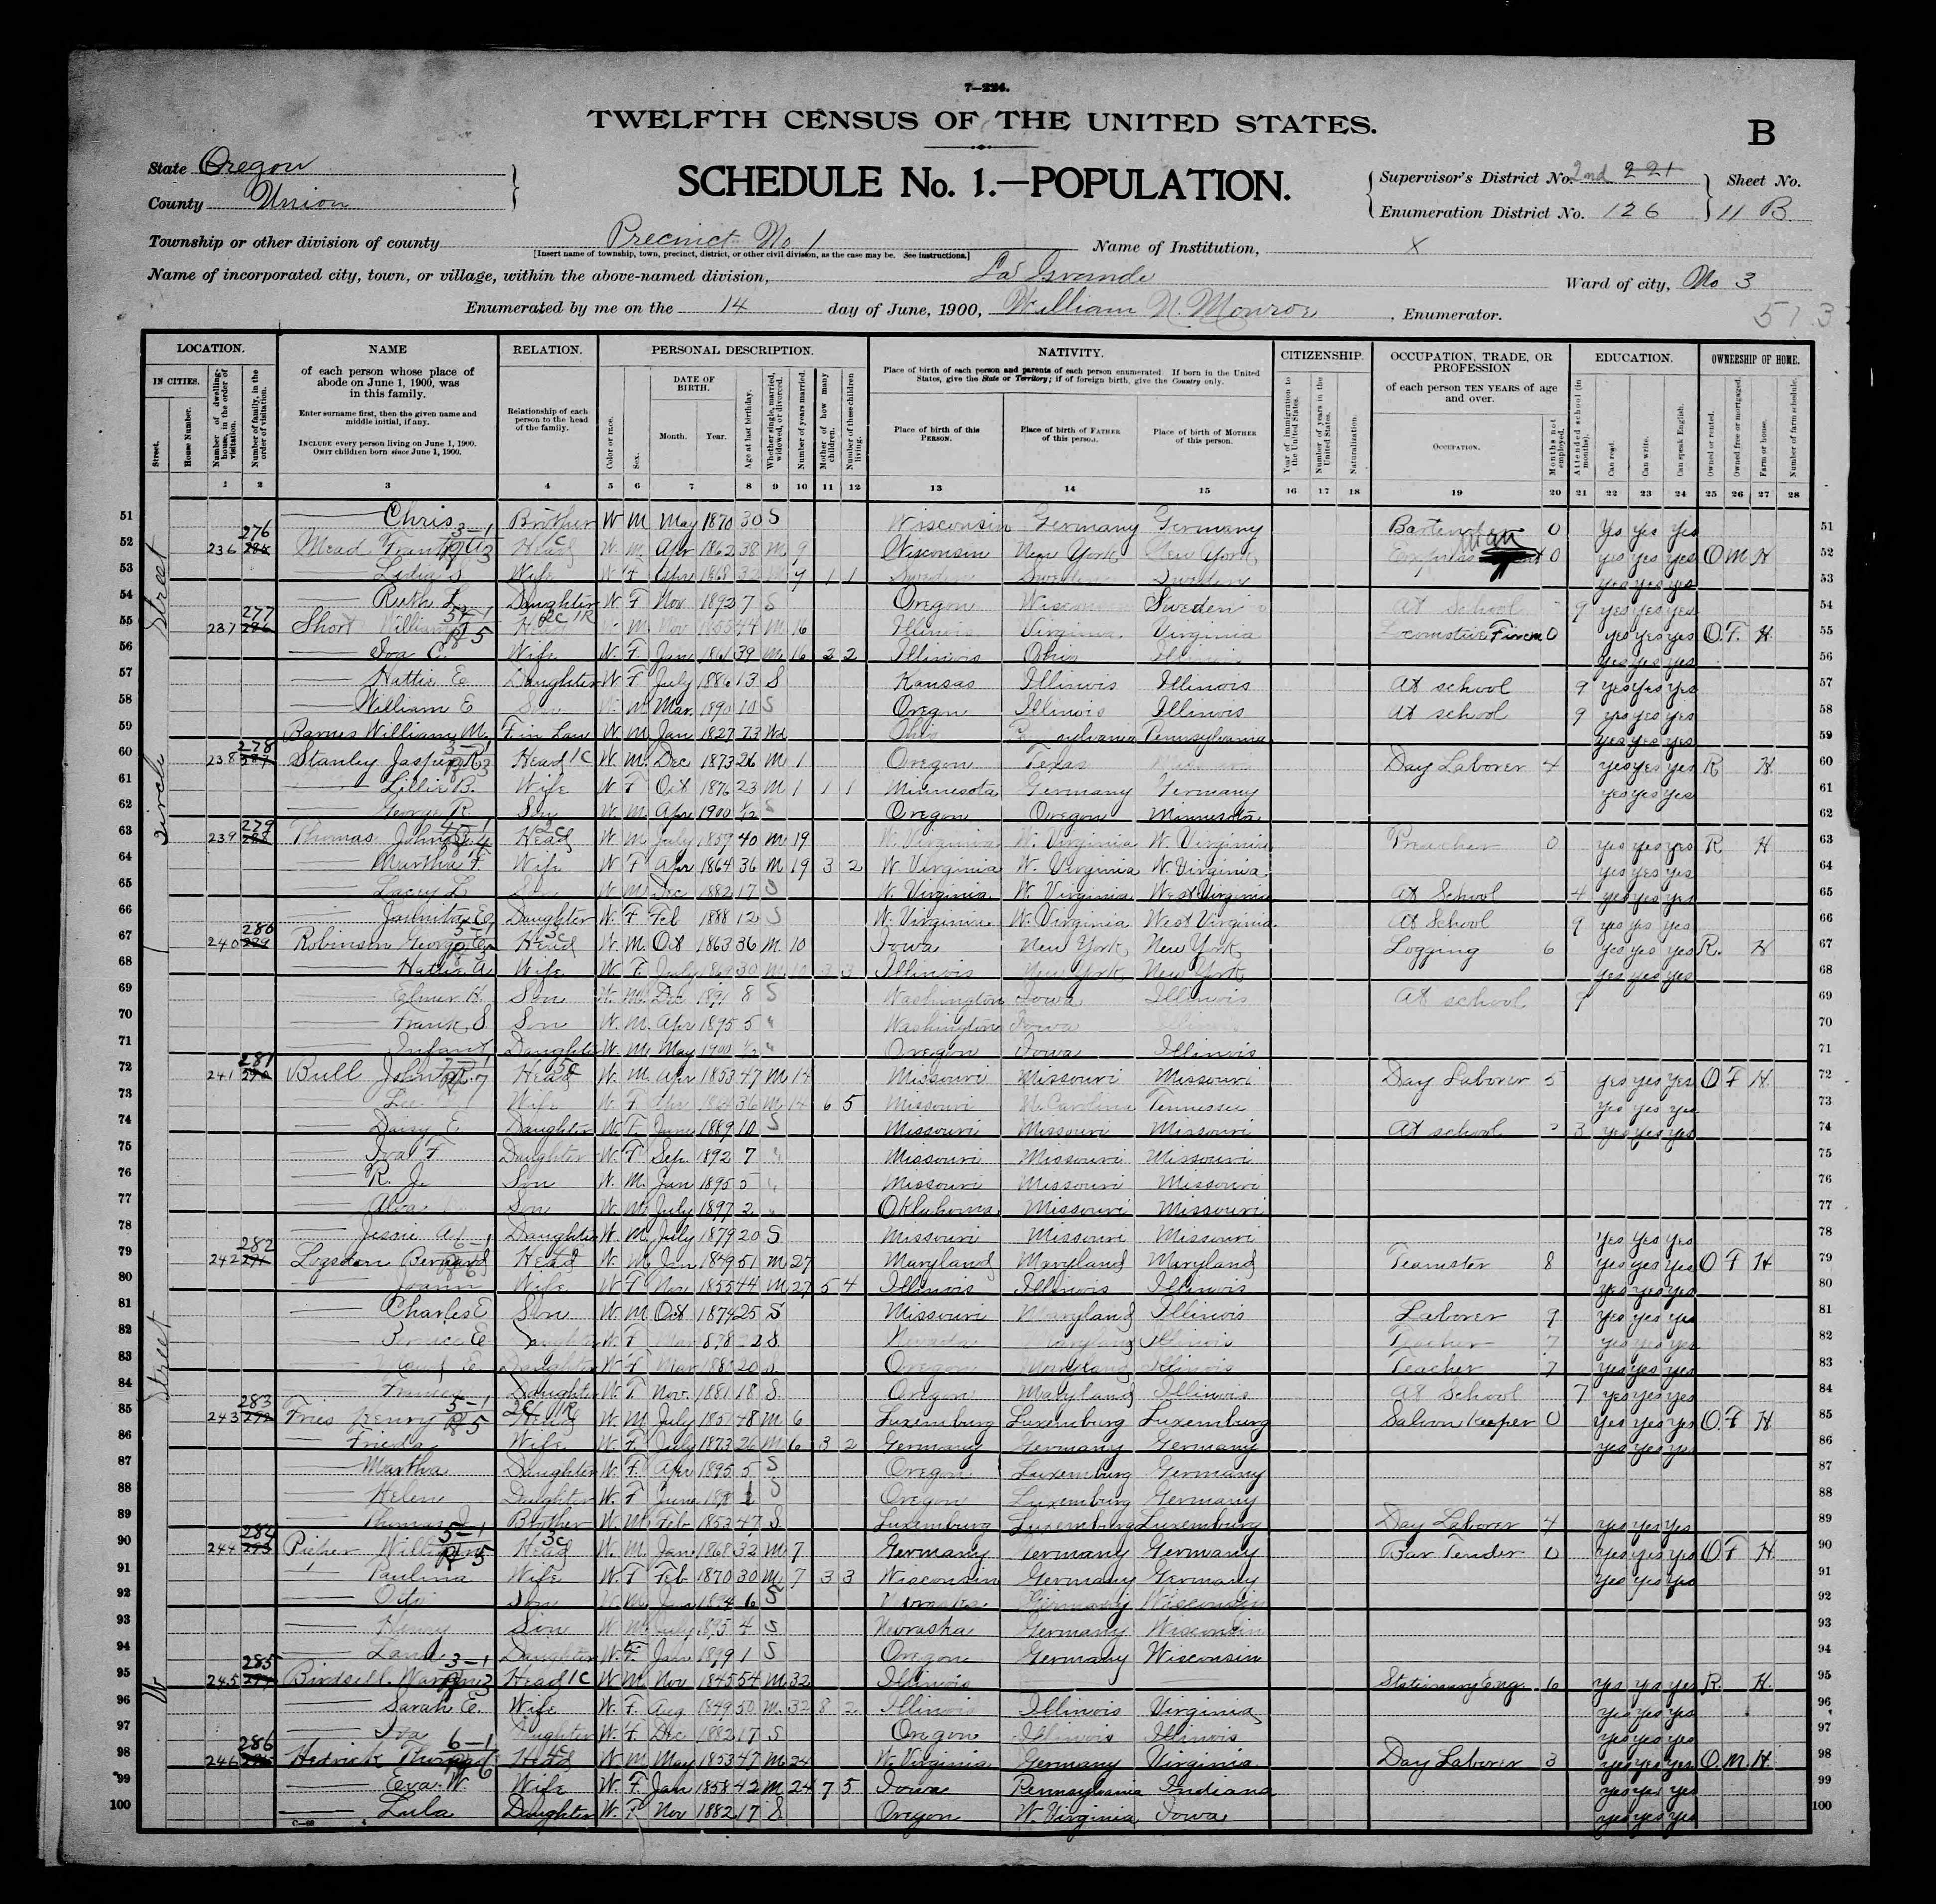 7—224.
TWELFTH CENSUS OF THE UNITED STATES.
B
State Oregon
County Union
SCHEDULE No. 1.—POPULATION.
Supervisor's District No. 2nd 221
Enumeration District No. 126
Sheet No.
11 B
Township or other division of county Precinct No 1
[Insert name of township, town, precinct, district, or other civil division, as the case may be. See instructions.]
Name of Institution, X
Name of incorporated city, town, or village, within the above-named division, La Grande
Ward of city, No 3
Enumerated by me on the 14 day of June, 1900, William N. Monroe, Enumerator.
LOCATION.
IN CITIES.
Street.
House Number.
Number of dwelling-house, in the order of visitation.
Number of family, in the order of visitation.
NAME
of each person whose place of abode on June 1, 1900, was in this family.
Enter surname first, then the given name and middle initial, if any.
INCLUDE every person living on June 1, 1900.
OMIT children born since June 1, 1900.
RELATION.
Relationship of each person to the head of the family.
PERSONAL DESCRIPTION.
Color or race.
Sex.
DATE OF BIRTH.
Month.
Year.
Age at last birthday.
Whether single, married, widowed, or divorced.
Number of years married.
Mother of how many children.
Number of these children living.
NATIVITY.
Place of birth of each person and parents of each person enumerated. If born in the United States, give the State or Territory; if of foreign birth, give the Country only.
Place of birth of this PERSON.
Place of birth of FATHER of this person.
Place of birth of MOTHER of this person.
CITIZENSHIP.
Year of immigration to the United States.
Number of years in the United States.
Naturalization.
OCCUPATION, TRADE, OR PROFESSION
of each person TEN YEARS of age and over.
OCCUPATION.
Months not employed.
EDUCATION.
Attended school (in months).
Can read.
Can write.
Can speak English.
OWNERSHIP OF HOME.
Owned or rented.
Owned free or mortgaged.
Farm or house.
Number of farm schedule.
1 2 3 4 5 6 7 8 9 10 11 12 13 14 15 16 17 18 19 20 21 22 23 24 25 26 27 28
51 Chris Brother W M May 1870 30 S Wisconsin Germany Germany Bartender 0 Yes Yes Yes 51
52 236 276 Mead Frank Head W M Apr 1862 38 M 9 Wisconsin New York New York Express man 0 yes yes yes O M H 52
53 Lidia S Wife W F Apr 1868 32 M 9 1 1 Sweden Sweden Sweden yes yes yes 53
54 Ruth L Daughter W F Nov 1892 7 S Oregon Wisconsin Sweden At School 9 yes yes yes 54
55 237 277 Short William Head M Nov 1855 44 M 16 Illinois Virginia Virginia Locomotive Firem 0 yes yes yes O F H 55
56 Iva C. Wife W. F. Jan 1861 39 M 16 2 2 Illinois Ohio Illinois yes yes yes 56
57 Hattie E Daughter W F July 1886 13 S Kansas Illinois Illinois At school 9 yes yes yes 57
58 William E Son W M Mar. 1890 10 S Oregon Illinois Illinois At school 9 yes yes yes 58
59 Barnes William M. F in Law W M Jan 1827 73 Wd Ohio Pennsylvania Pennsylvania yes yes yes 59
60 238 278 Stanley Jasper Head 1C W M. Dec 1873 26 M 1 Oregon Texas Day Laborer 4 yes yes yes R H 60
61 Lillie B. Wife W F Oct 1876 23 M 1 1 1 Minnesota Germany Germany yes yes yes 61
62 George R. Son W. M. Apr 1900 1/12 S Oregon Oregon Minnesota 62
63 239 279 Thomas John Head W M July 1859 40 M 19 W. Virginia W. Virginia W. Virginia Preacher 0 yes yes yes R H 63
64 Martha F Wife W F Apr 1864 36 M 19 3 2 W. Virginia W. Virginia W. Virginia yes yes yes 64
65 Lacey L Son W M Dec 1882 17 S W. Virginia W. Virginia West Virginia At School 4 yes yes yes 65
66 Jaunita E Daughter W. F Feb 1888 12 S W. Virginia W. Virginia West Virginia At School 9 yes yes yes 66
67 240 280 Robinson George E Head W. M. Oct 1863 36 M. 10 Iowa New York New York Logging 6 yes yes yes R. H 67
68 Hattie A Wife W F. July 1869 30 M 10 3 3 Illinois New York New York yes yes yes 68
69 Elmer H. Son W. M. Dec 1891 8 S Washington Iowa Illinois At school 9 69
70 Frank S. Son W. M. Apr 1895 5 " Washington Iowa Illinois 70
71 Infant Daughter W. M. May 1900 1/12 " Oregon Iowa Illinois 71
72 241 281 Bull John Head W. M Apr 1853 47 M 14 Missouri Missouri Missouri Day Laborer 5 yes yes yes O F H. 72
73 Wife W F Apr 1864 36 M 14 6 5 Missouri N. Carolina Tennessee yes yes yes 73
74 Daisy E. Daughter W F. June 1889 10 S Missouri Missouri Missouri At school 3 yes yes yes 74
75 Iva F Daughter W. F Sep. 1892 7 " Missouri Missouri Missouri 75
76 R. J. Son W. M. Jan 1895 5 " Missouri Missouri Missouri 76
77 Alva Son W M July 1897 2 " Oklahoma Missouri Missouri 77
78 Jessie A Daughter W. M. July 1879 20 S Missouri Missouri Missouri yes yes yes 78
79 242 282 Logsdon Bernard Head W. M Jan 1849 51 M 27 Maryland Maryland Maryland Teamster 8 yes yes yes O F H 79
80 Joann Wife W F Nov 1855 44 M 27 5 4 Illinois Illinois Illinois yes yes yes 80
81 Charles E Son W. M. Oct 1874 25 S Missouri Maryland Illinois Laborer 9 yes yes yes 81
82 Daughter W. F Mar 1878 22 S. Nevada Maryland Illinois Teacher 7 yes yes yes 82
83 Maud E. Daughter W F Mar 1880 20 S Oregon Maryland Illinois Teacher 7 yes yes yes 83
84 Daughter W. F. Nov. 1881 18 S. Oregon Maryland Illinois At School 7 yes yes yes 84
85 243 283 Fries Henry Head W. M. July 1851 48 M 6 Luxemburg Luxemburg Luxemburg Saloon Keeper 0 yes yes yes O. F H 85
86 Frieda Wife W. F. July 1873 26 M 6 3 2 Germany Germany Germany yes yes yes 86
87 Martha Daughter W. F. Apr 1895 5 S Oregon Luxemburg Germany 87
88 Helen Daughter W. F June S Oregon Luxemburg Germany 88
89 Thomas J Brother W. M. Feb 1853 47 S Luxemburg Luxemburg Luxemburg Day Laborer 4 yes yes yes 89
90 244 284 William Head W. M. Jan 1868 32 M. 7 Germany Germany Germany Bar Tender 0 yes yes yes O F H. 90
91 Paulina Wife W. F Feb 1870 30 M. 7 3 3 Wisconsin Germany Germany yes yes yes 91
92 Oito Son W. M. Jan 1894 6 S Nebraska Germany Wisconsin 92
93 Henry Son W. M. July 1895 4 S Nebraska Germany Wisconsin 93
94 Daughter W. F. Jan 1899 1 S Oregon Germany Wisconsin 94
95 245 285 Birdsell Warren Head 1C W M. Nov 1845 54 M. 32 Illinois Stationary Eng. 6 yes yes yes R. H. 95
96 Sarah E. Wife W. F. Aug 1849 50 M. 32 8 2 Illinois Illinois Virginia yes yes yes 96
97 Iva Daughter W. F. Dec 1882 17 S Oregon Illinois Illinois yes yes yes 97
98 246 286 Hedrick Thomas Head W M May 1853 47 M 24 W. Virginia Germany Virginia Day Laborer 3 yes yes yes O. M. H. 98
99 Eva W. Wife W. F Jan 1858 42 M 24 7 5 Iowa Pennsylvania Indiana yes yes yes 99
100 Lula Daughter W. F Nov 1882 17 S Oregon W. Virginia Iowa yes yes yes 100